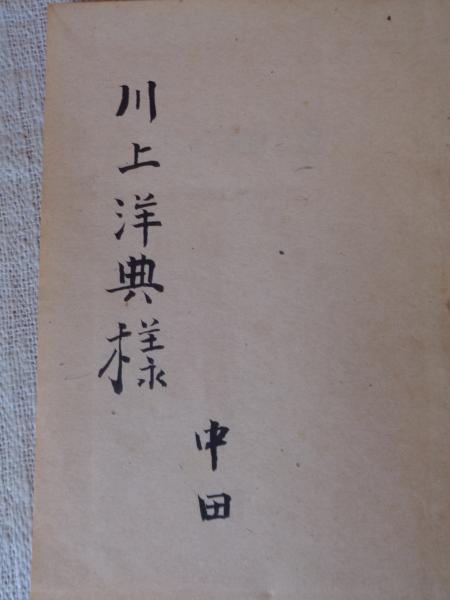 川上洋典様
中田